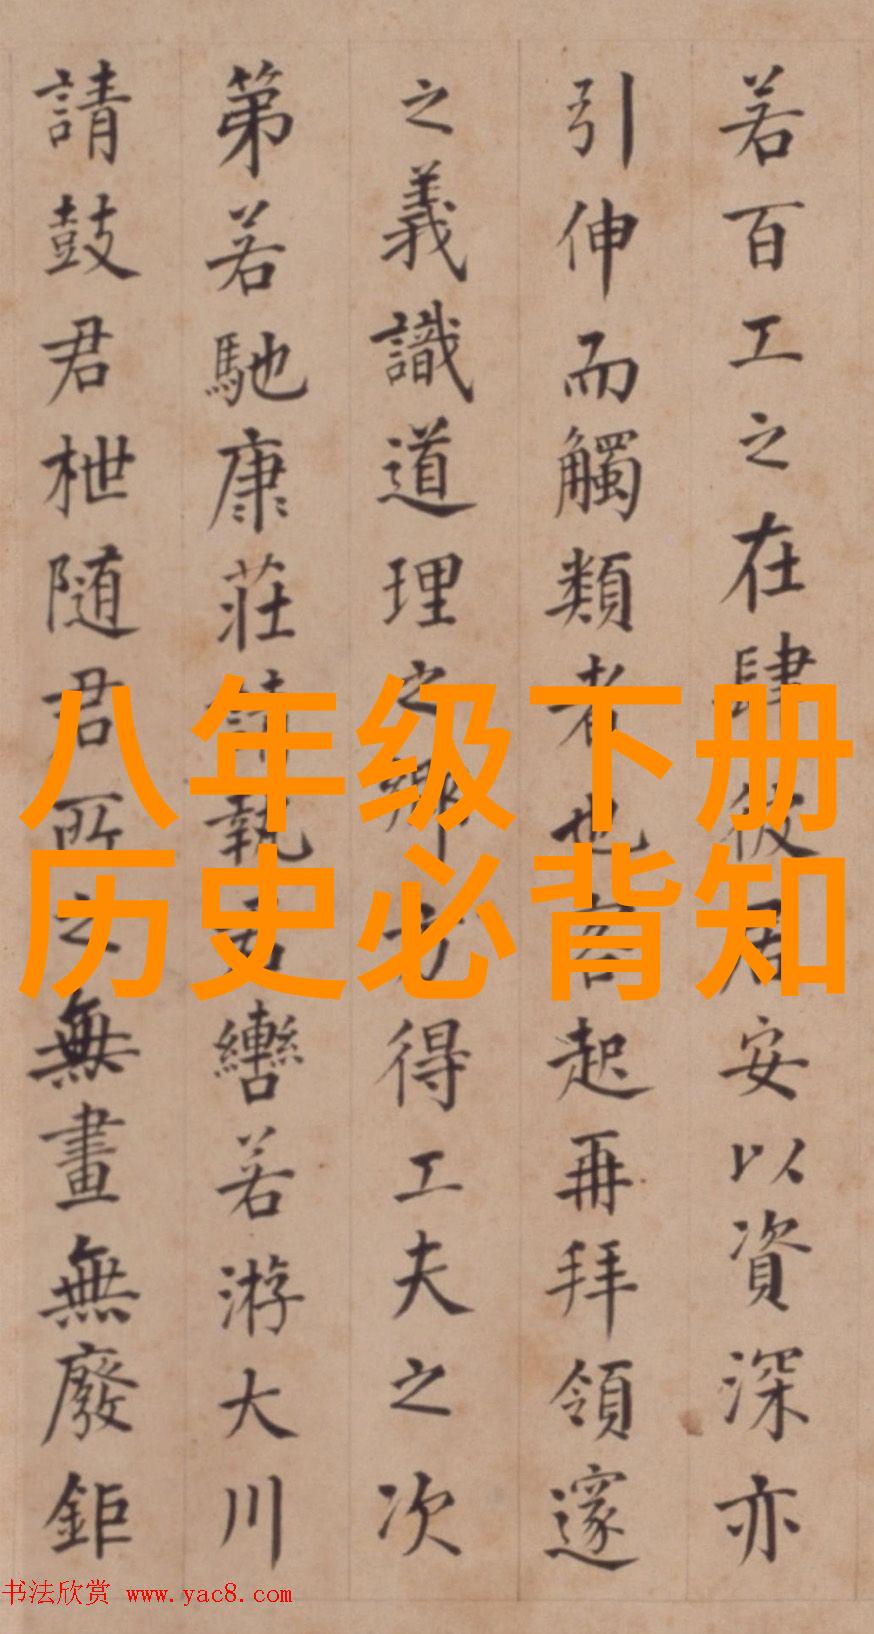 若百工之在肆彼居安以資深亦
引伸而觸類者也客起再拜領邃
之義識道理之鄉方得工夫之次
第若馳康莊請執君轡若游大川
請鼓君枻随君所之無畫無廢鉅
八年级下册
历史必背知
书法欣赏 www.yac8.com